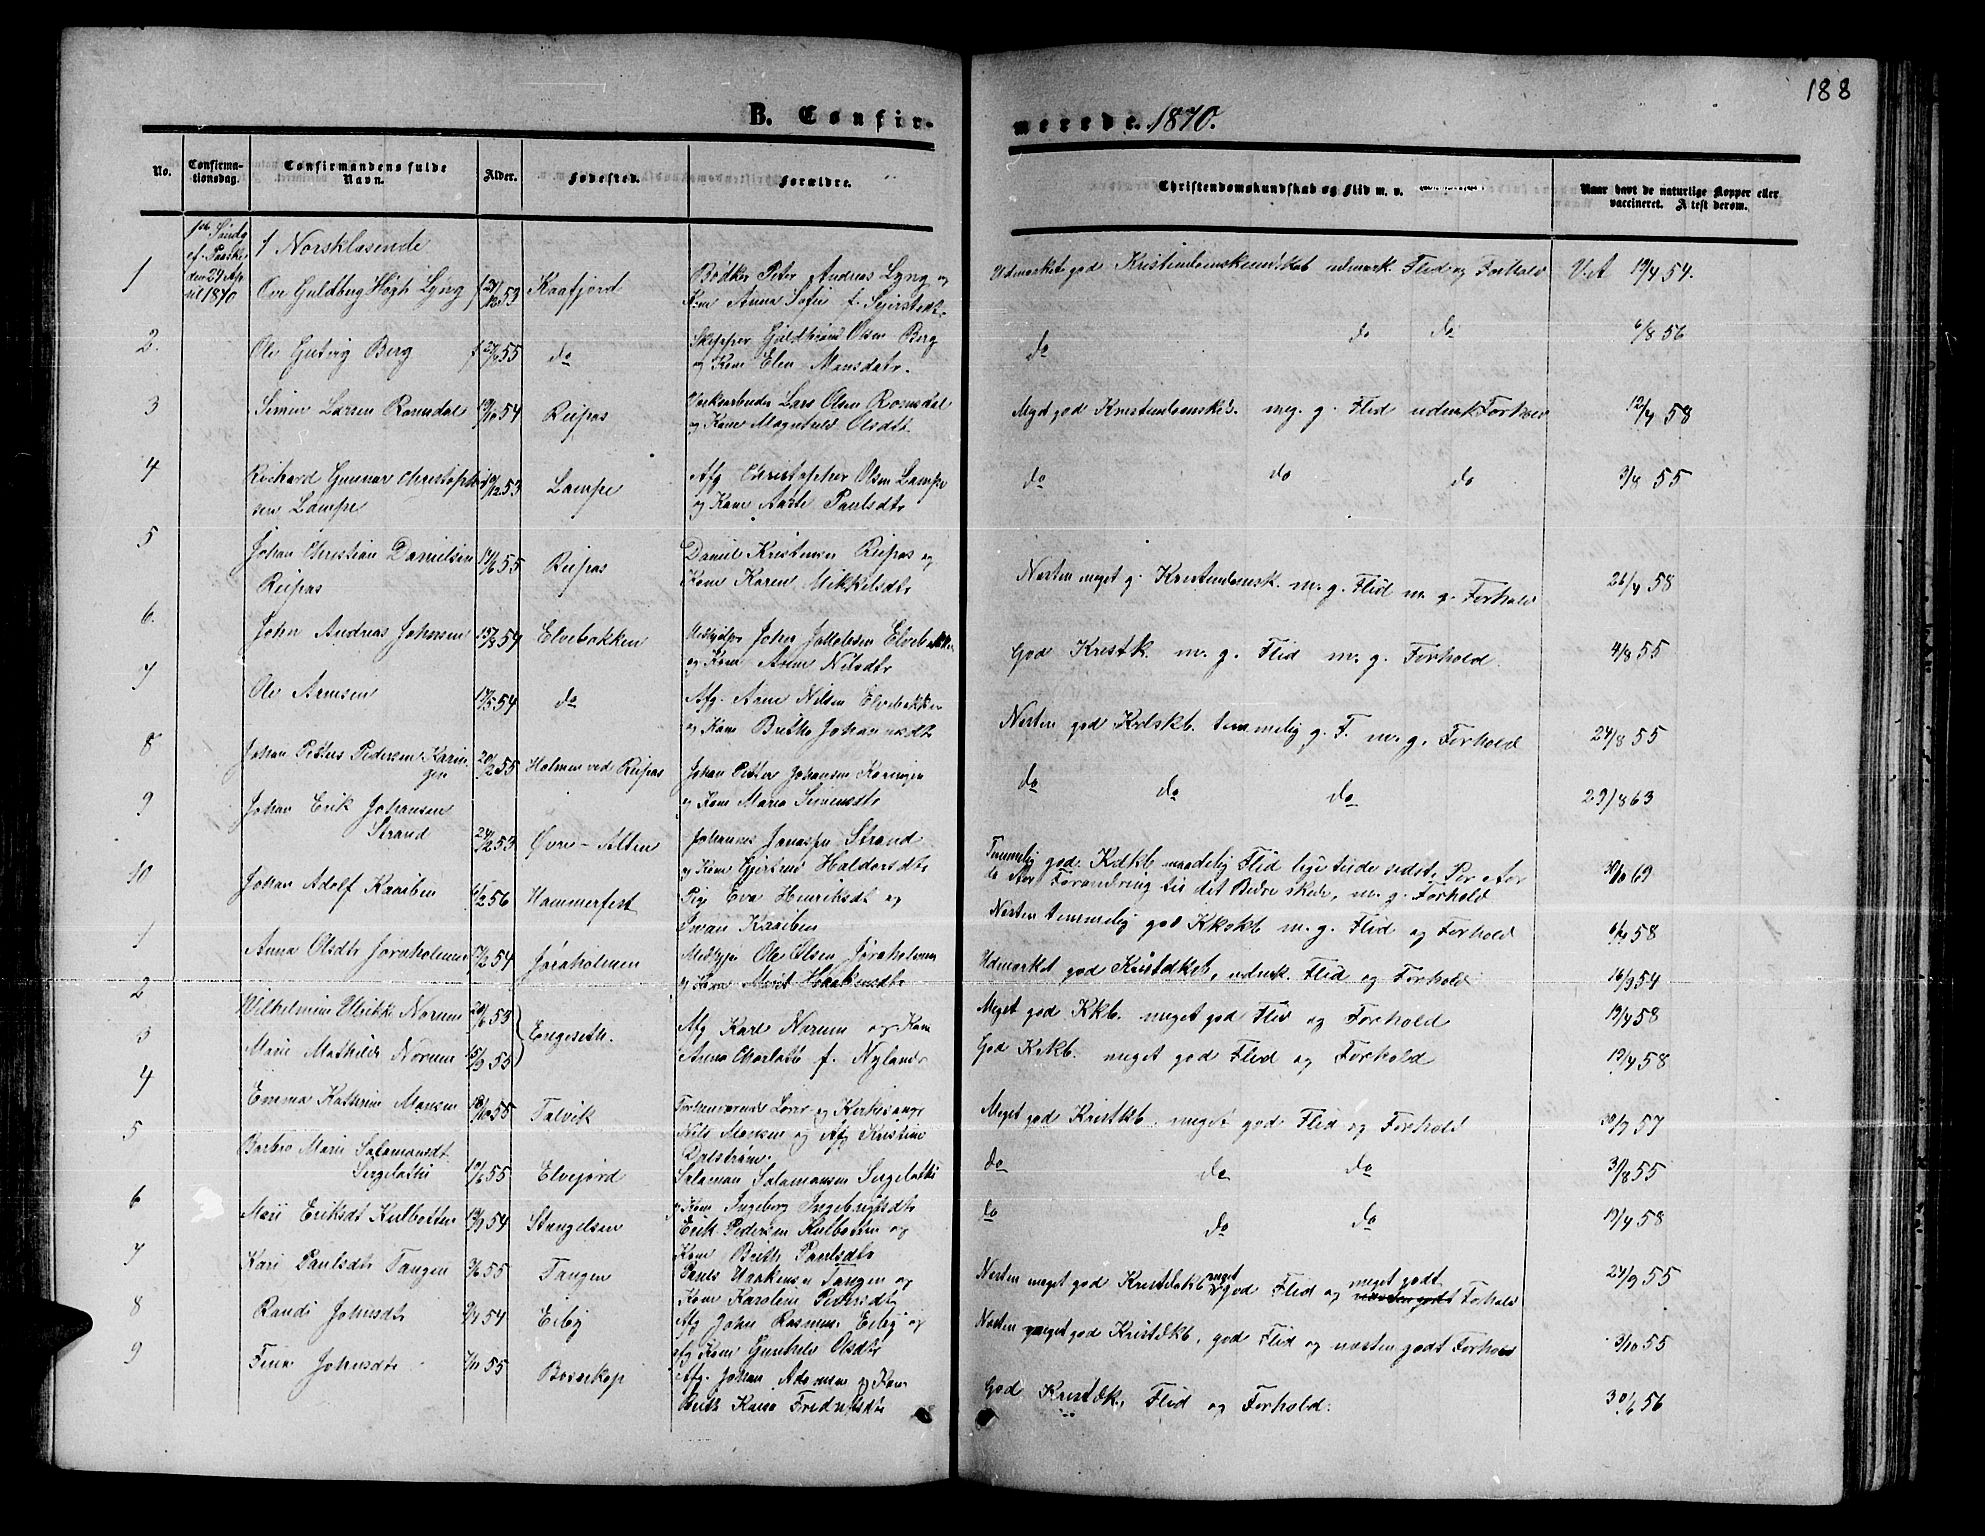 188
B. Confir-
merede. 1870.
No.
Confirma-
tionsdag.
Confirmandens fulde
Navn.
Alder.
Fødested.
Forældre.
Christendomskundskab og Flid m. v.
Naar havt de naturlige Kopper eller
vaccineret. Attest derom.
1ste Søndag
ef. Paaske
den 24 Ap-
ril 1870
1 Norsklæsende
1 Ove Guldberg Høgh Lyng 53 Kaafjord Bødker Peter Andreas Lyng og
Kone Anna Sofie f. Sejersted.
Udmærket god Kristendomskundskab udmærk. Flid og Forhold V.A 19/4 54.
2. Ole Gutvig Berg 55 do Skipper Olsen Berg
og Kone Elen Mansdtr.
do do do 6/8 56
3 Simon Larsen Romsdal 19/10 54 Reipas Værksarbeider Lars Olsen Romsdal
og Kone Magnhild Olsdtr.
Meget god Kristendomsk. meg. g. Flid udmrk Forhold 12/4 58
4 Richard Gunnar Christopher-
sen Lampe 53 Lampe Afg Christopher Olsen Lampe
og Kone Paulsdtr
do do do 3/8 55
5 Johan Christian Danielsen
Reipas 55 Reipas Daniel Kristensen Reipas og
Kone Karen Mikkelsdtr
Næsten meget g. Kristendomsk. m. g. Flid m. g. Forhold 26/4 58
6. John Andreas Johnsen 15/8 54 Elvebakken John Jakobsen Elvebakken
og Kone Anne Nilsdtr
God Kristk. m. g. Flid m. g. Forhold. 4/8 55
7 Ole Arnesen 17/5 54 do Afg. Arne Nilsen Elvebakken
og Kone Britha Johannesdtr
Næsten god Krdskb. temmelig g. F. m. g. Forhold 24/8 55
8 Johan Petter Pedersen Karin-
gen 20/2 55 Holmen ved Reipas Johan Petter Johansen Karingen
og Kone Maria Simonsdtr
do do do 29/8 63
9 Johan Erik Johansen
Strand 24/2 53 Øvre-Alten Johannes Strand
og Kone Haldorsdtr
Temmelig god Kdkb. maadelig Flid lige til de sidst.
da stor Forandring til det Bedre skede, m. g. Forhold 69
10 Johan Adolf Kraiben 6/2 56 Hammerfest Pige Eva Henriksdt og
Kraiben
Næsten temmelig god Kkdkb m. g. Flid og Forhold 58
1 Anna Olsdtr Jøraholmen 17/2 54 Jøraholmen Ole Olsen Jøraholmen
og Kone Marit Haakensdtr
Udmærket god Kristdkb, udmrk. Flid og Forhold 16/9 54
2 Vilhelmine Ulrikke Norum 20/6 53
3 Marie Mathilde Norum 15/9 55
Engeseth. Afg Karl Norum og Kone
Anna Charlotte f. Nylander
Meget god Kkb. meget god Flid og Forhold 19/4 58
God Kdkb. meget god Flid og Forhold 19/4 58
4 Emma Kathrine Monsen 18/10 55 Talvik Forhenværende Lærer og Kirkesanger
Nils Monsen og Afg Kristine
Meget god Kristkb. meget god Flid og Forhold 57
5 Barbro Marie Salamonsdt.
Sirgelatti 19/6 55 Elvejord Salamon Salamonsen Sirgelatti
og Kone Ingeborg Ingebrigtsdtr
do do do 31/8 55
6 Mari Eriksdt Kulbotten 54 Stengelsen Erik Pedersen Kulbotten og
Kone Brith Paulsdtr
do do do 19/4 58
7 Kari Paulsdtr Tangen 55 Tangen Paul Haakensen Tangen og
Kone Karoline Pedersdtr
Næsten meget god Kristdkb meget god Flid og meget godt Forhold 24/9 55
8 Randi Johnsdtr 54 Eiby Afg John Rasmus Eiby og
afg Kone Gunhild Olsdtr
Næsten meget god Kristdkb. god Flid og næsten godt Forhold 3/10 55
9 Johnsdtr 55 Bosekop Afg. Johan Adamsen og Kone
Brith Kaisa Fredriksdtr
God Kristdk. Flid og Forhold. 30/6 56